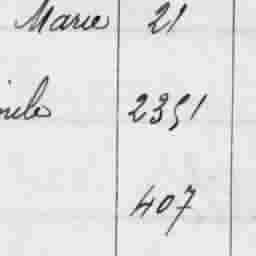 Marie 21
2351
407